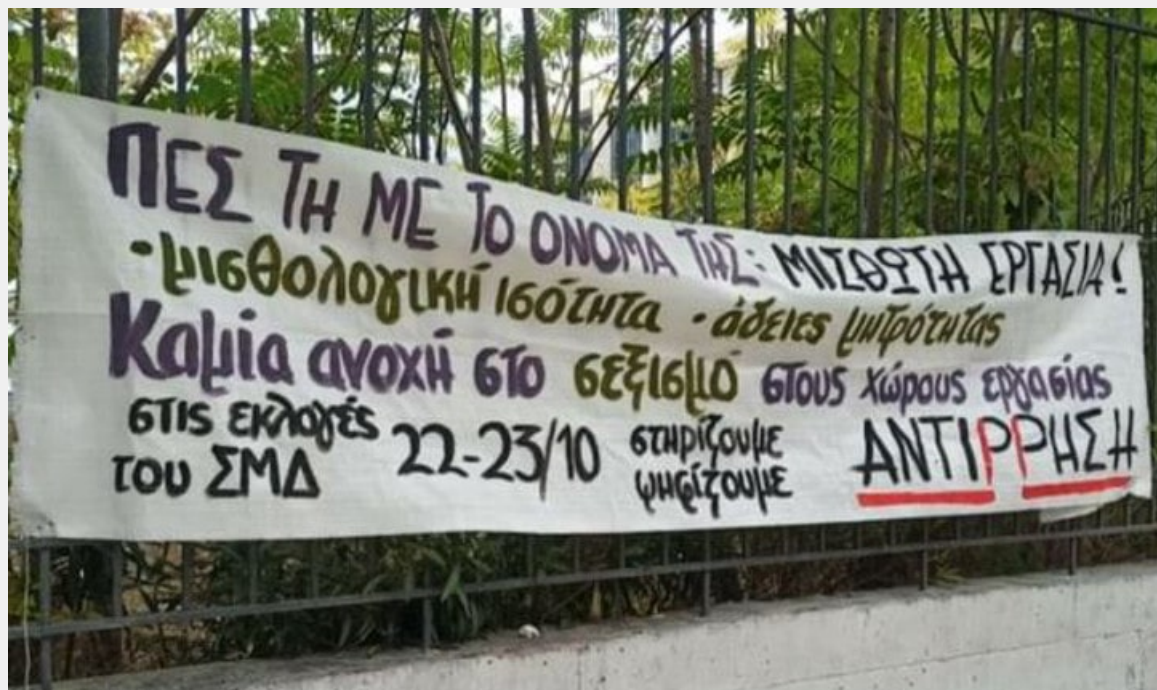 ΠΕΣ ΤΗ ΜΕ ΤΟ ΟΝΟΜΑ ΤΗΣ: ΜΙΣΘΩΤΗ ΕΡΓΑΣΙΑ!
·μισθολογική ισότητα ·άδειες μητρότητας
Καμία ανοχή στο σεξισμό στους χώρους εργασίας
στις εκλογές του ΣΜΔ 22-23/10 στηρίζουμε ψηφίζουμε ΑΝΤΙΡΡΗΣΗ